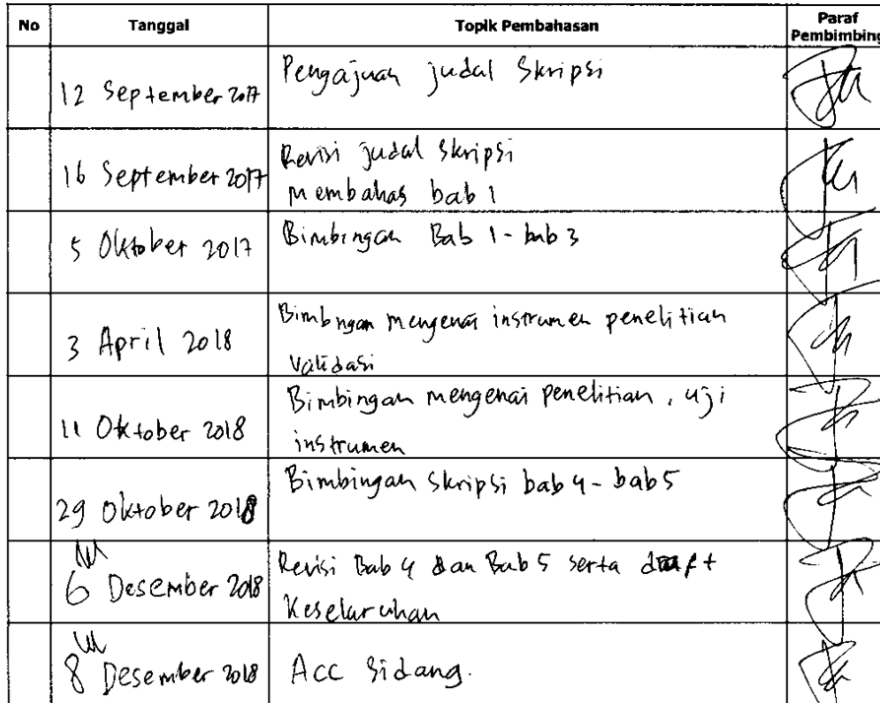 No Tanggal Topik Pembahasan Paraf Pembimbing
12 September 2017 Pengajuan judul Skripsi
16 September 2017 Revisi judul Skripsi
membahas bab 1
5 Oktober 2017 Bimbingan Bab 1 - bab 3
3 April 2018 Bimbngan mengenai instrumen penelitian
validasi
11 Oktober 2018 Bimbingan mengenai penelitian, uji
instrumen
29 Oktober 2018 Bimbingan Skripsi bab 4 - bab 5
6 Desember 2018 Revisi Bab 4 dan Bab 5 serta draft
Keseluruhan
8 Desember 2018 Acc Sidang.